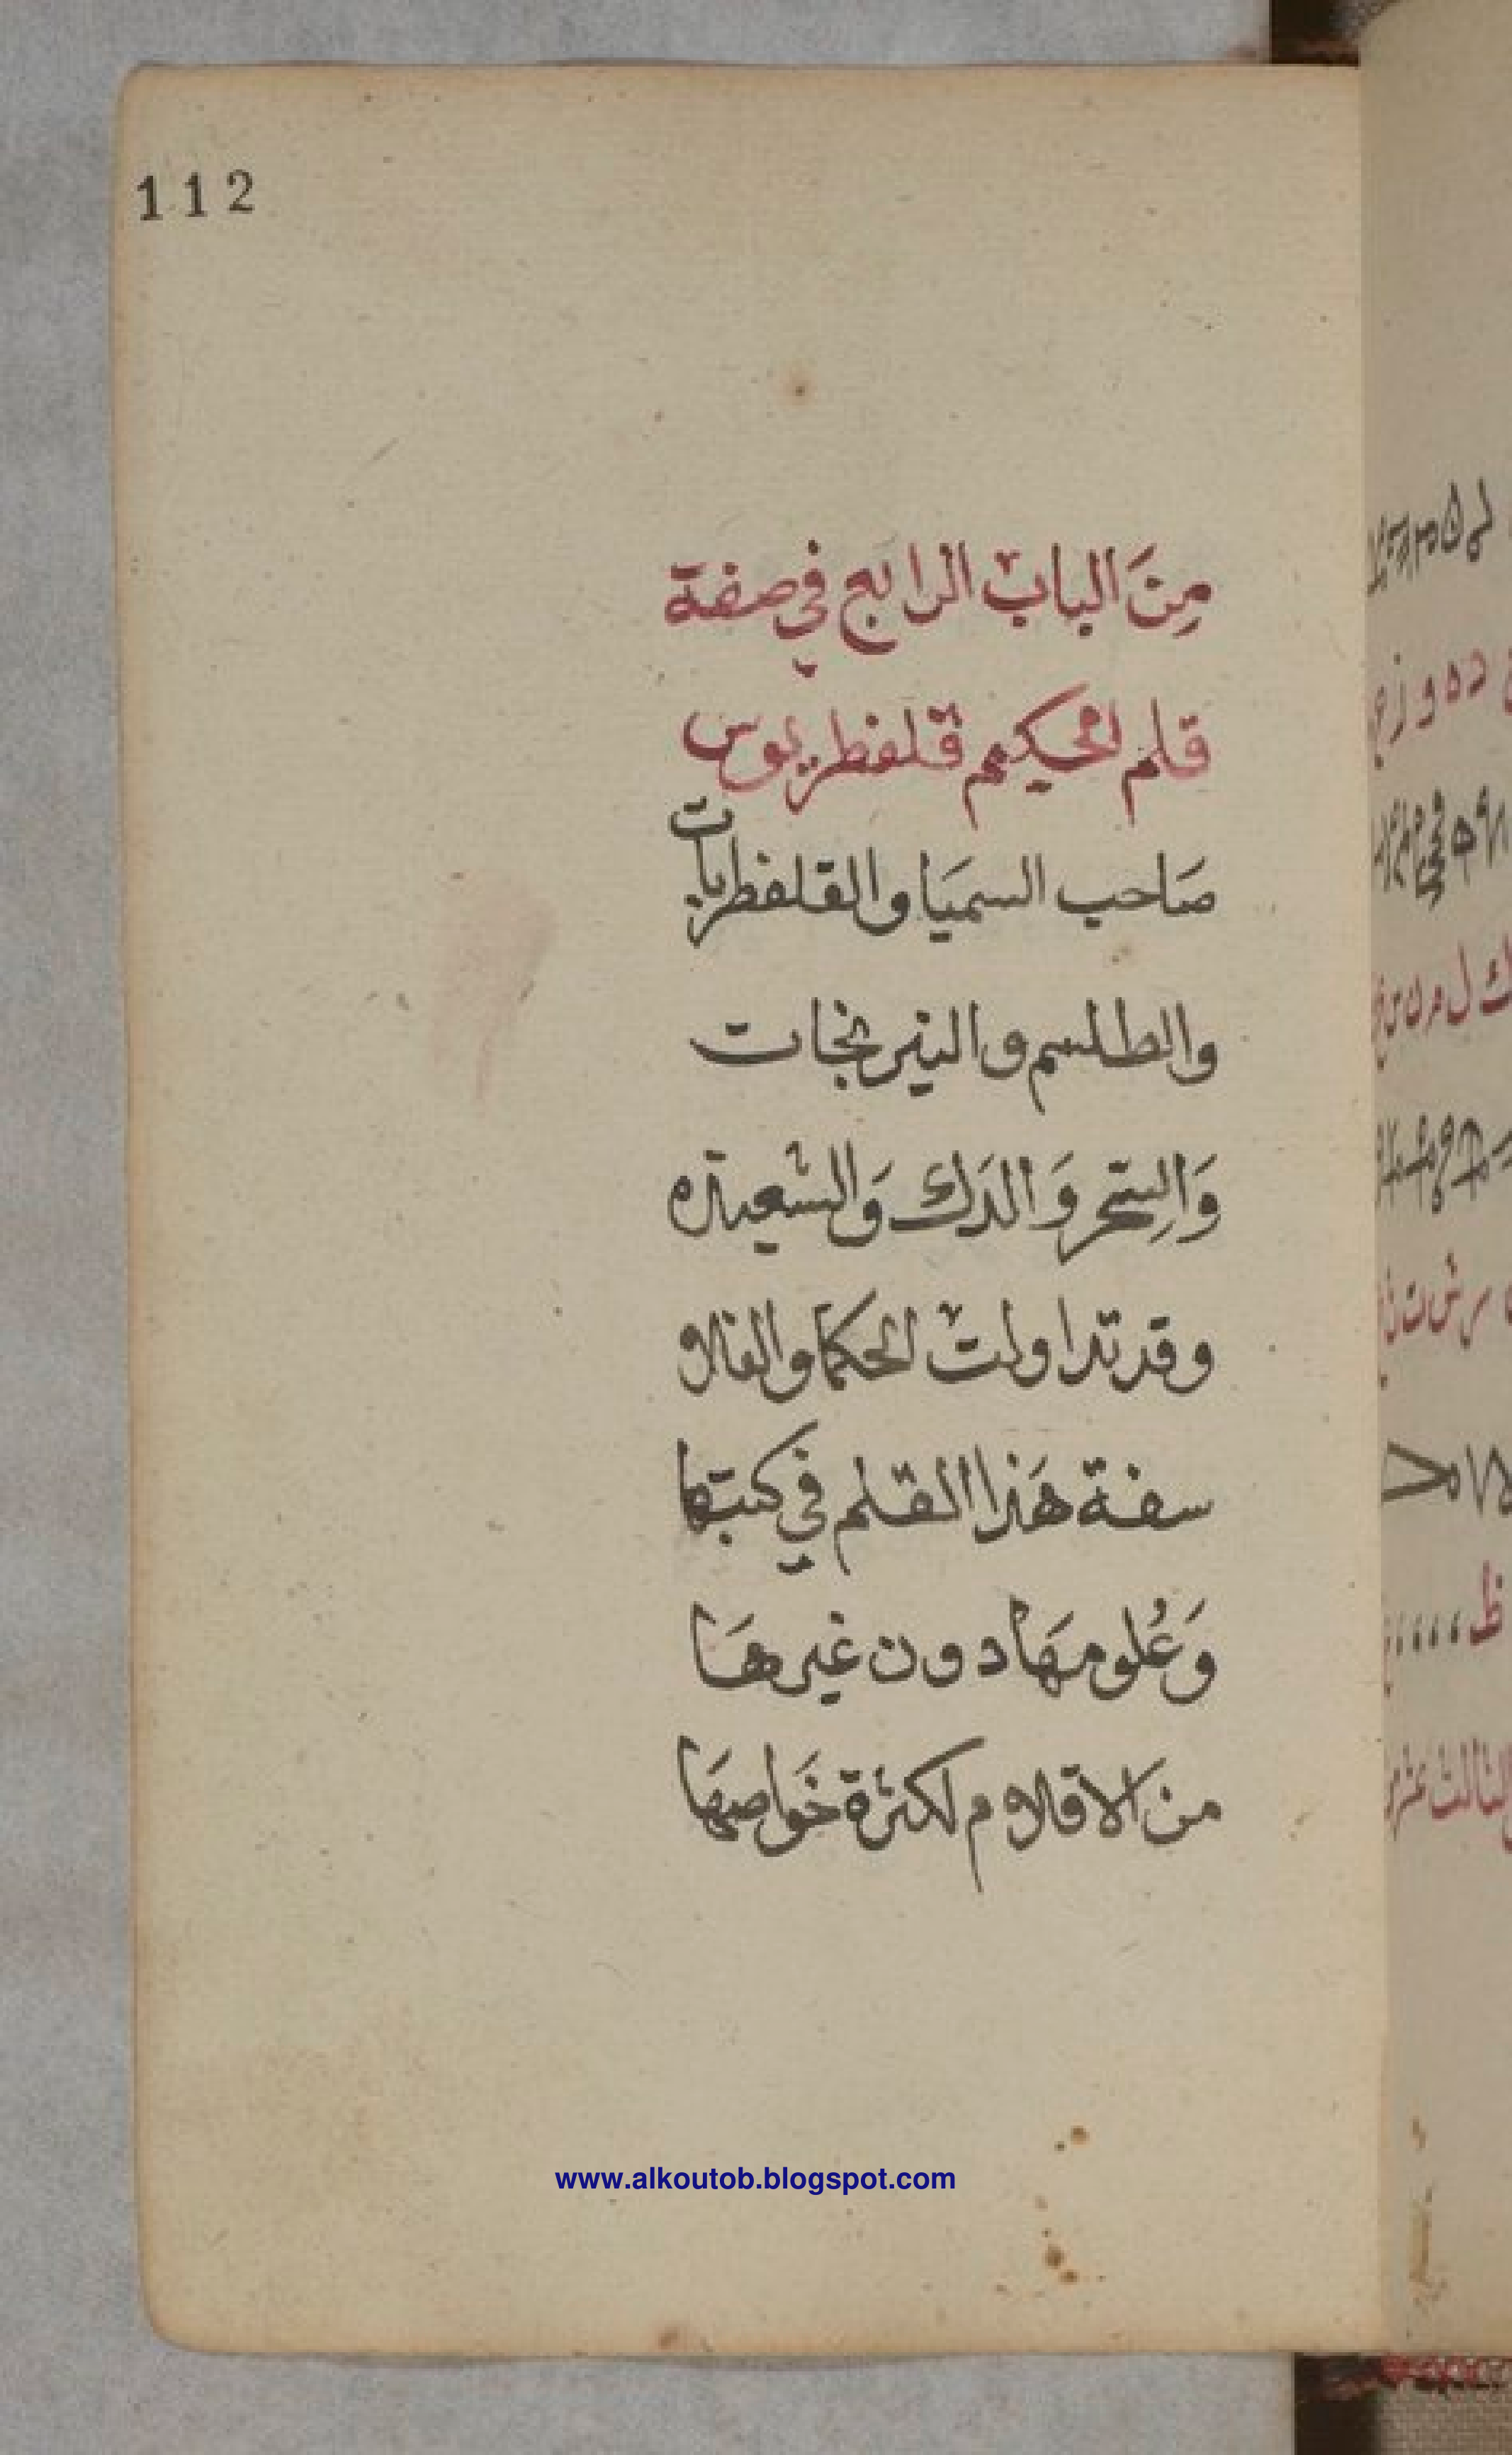 112
مِنَ البابْ الرابع في صفة
قلم الحكيم قلفطريوس
صَاحب السميَا والقلفطريات
والطلسم والنيرنجات
وَالِسّحر وَالدَك وَالشعبذه
وقد تداولتْ الحكما والفلا
سفة هَذا القلم في كتبها
وَعُلومهَا دون غيرهَا
منَ الاقلام لكثرة خَواصهَا
www.alkoutob.blogspot.com